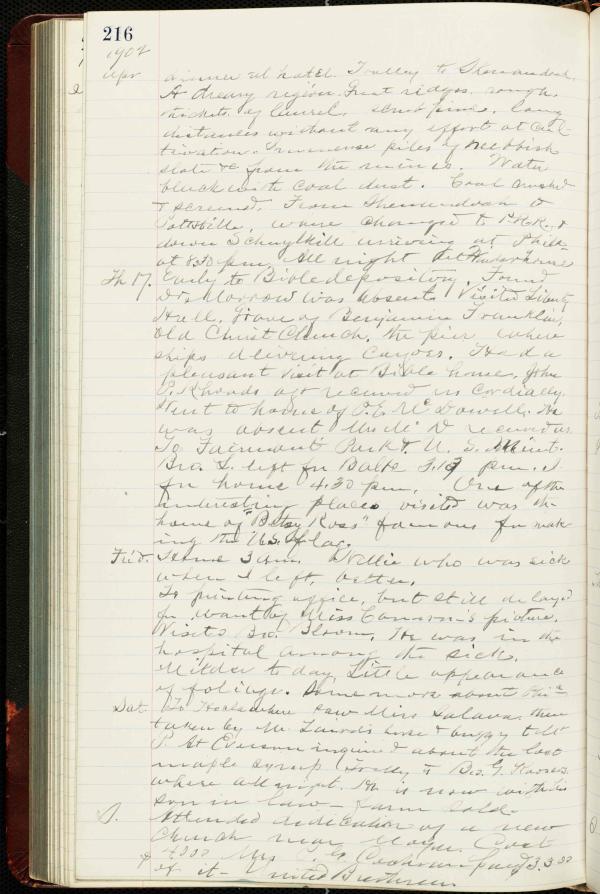 216
1902
Apr dinner at hotel. Trolley to Shenandoah.
A dreary region. Great ridges, rough,
thickets of laurel, scrub pine. Long
distances without any effort at cul-
tivation. Immense piles of rubbish
slate &c from the mines. Water
black with coal dust. Coal crushed
& screened. From Shenandoah to
Pottsville, where changed to P.R.R. &
down Schuylkill arriving at Phila
at 8.30 pm. All night at
Th 17. Early to Bible depository. Found
Dr Morrow was absent. Visited Liberty
Hall, Grave of Benjamin Franklin,
Old Christ Church, the pier where
ships delivering cargoes. Had a
pleasant visit at Bible house, John
P. Rhoads agt received us cordially.
Went to home of P. E. McDowell. He
was absent Mrs Mc D received us
To Fairmont Park & U. S. Mint.
Bro. S. left for Balto pm. I
for home 4.30 pm. One of the
interesting places visited was the
home of "Betsy Ross" famous for mak-
ing the U.S. flag.
Frid. Home 3 am. Nellie who was sick
when I left, better.
To printing office, but still delayed
for want of Miss picture.
Visits Bro. Bloom. He was in the
hospital among the sick.
Milder to day. Little appearance
of foliage. Some more about
Sat. To where saw Miss then
taken by Mr. horse & buggy to Mt
P. At Everson inquired about the lost
maple syrup. Trolley to Bro. G.
where all night. He is now with his
son in law - farm sold.
S. Attended dedication of a new
church near Cost
$ Mrs. Cochran paid
of it - United Brethren